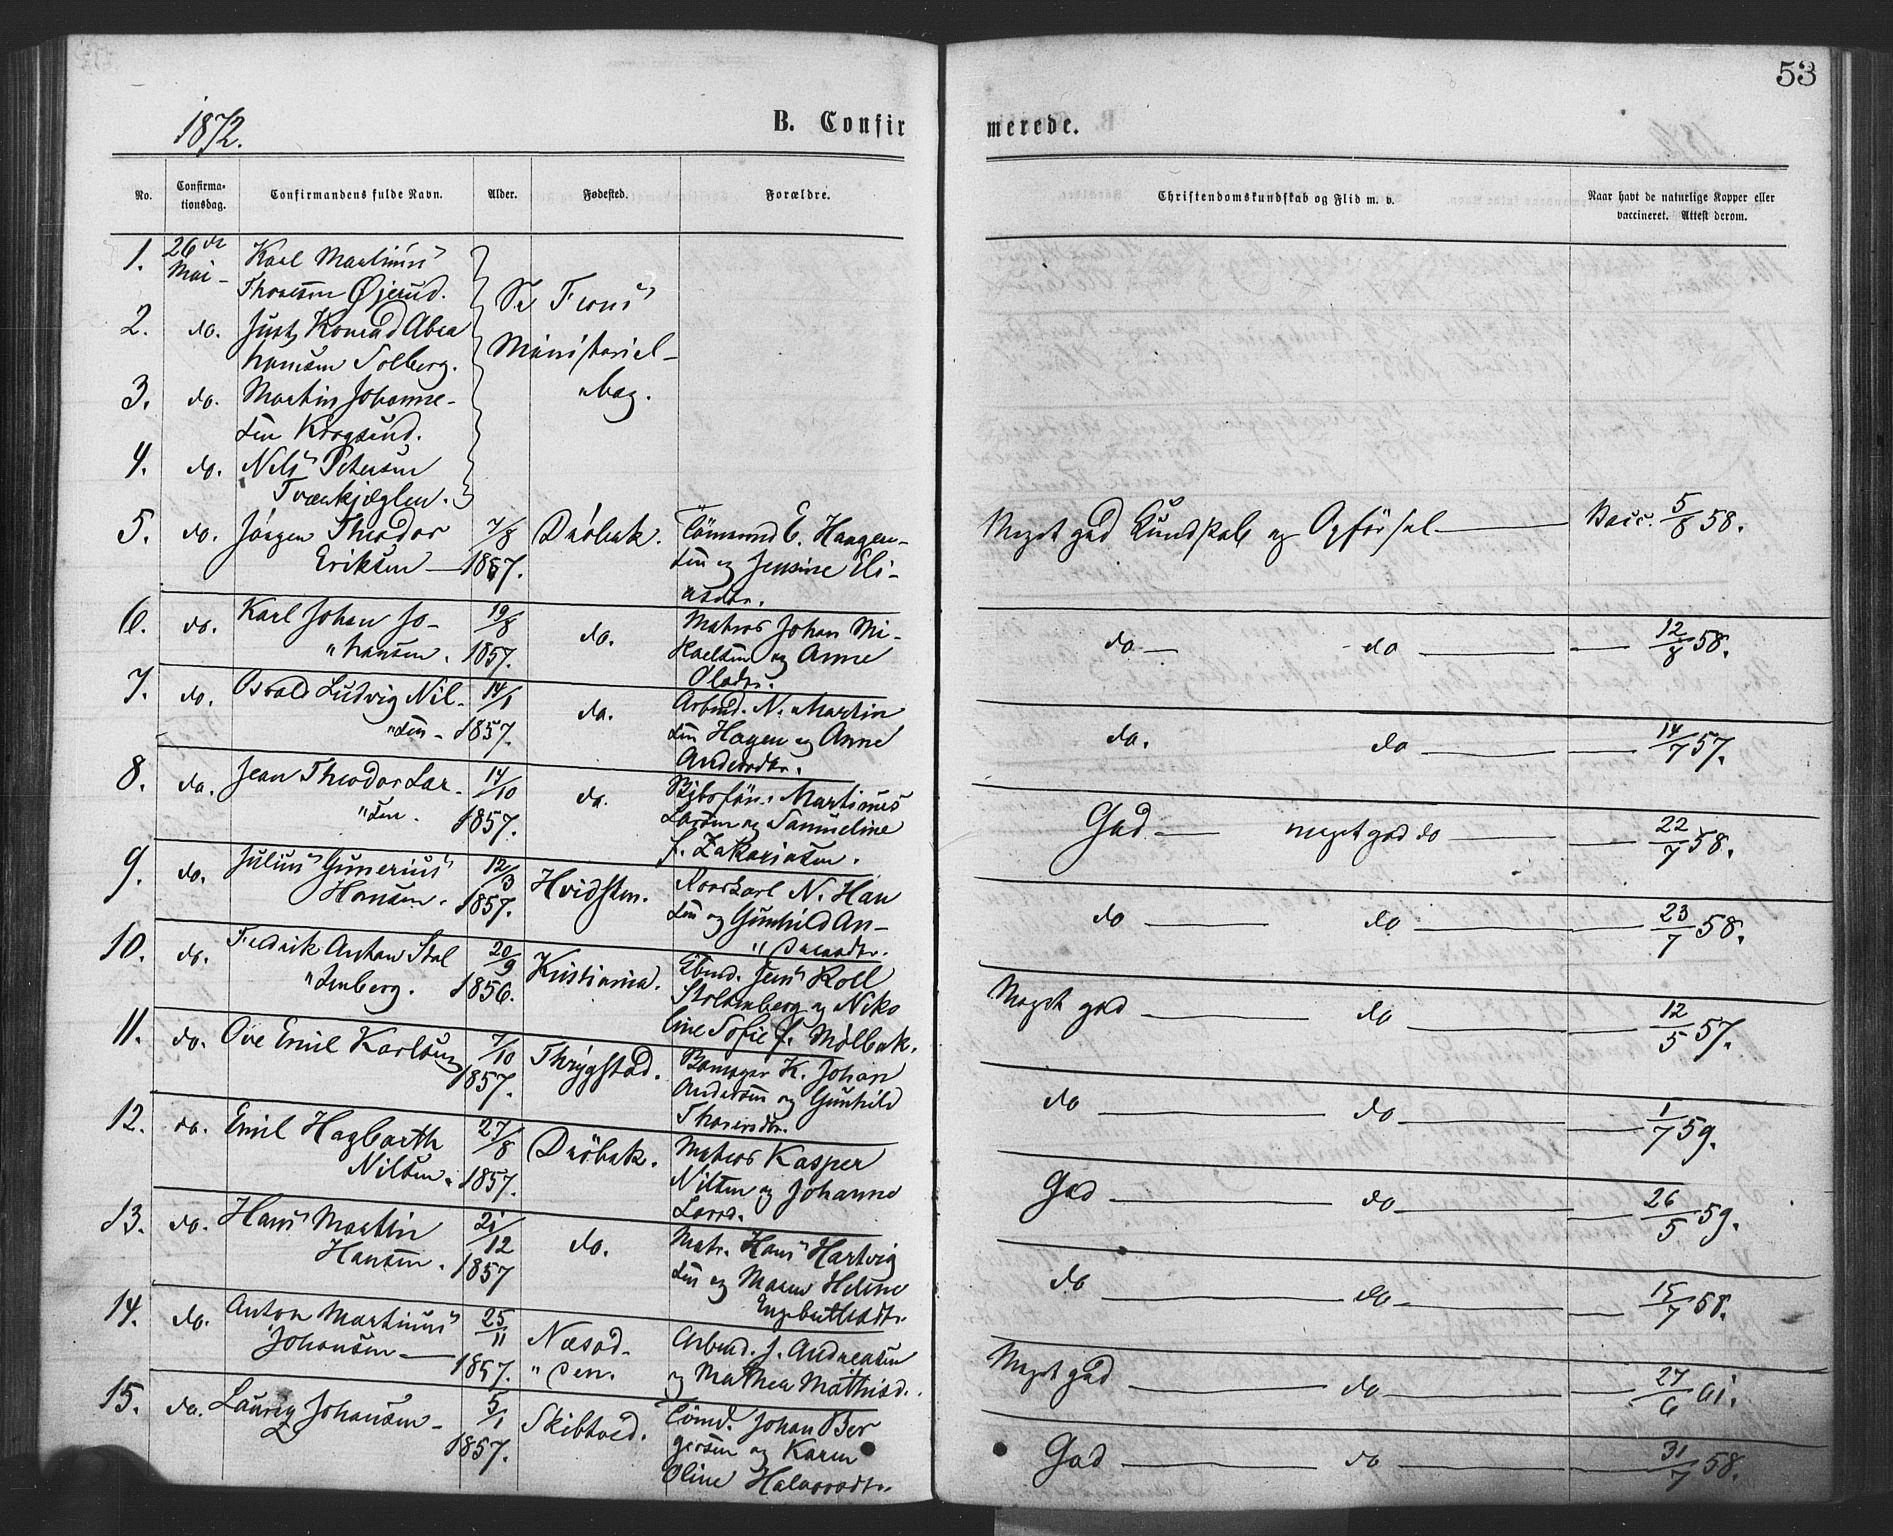 53
1872.
B. Confirmerede.
No. Confirmationsdag. Confirmandens fulde Navn. Alder. Fødested. Forældre. Christendomskundskab og Flid m. v. Naar havt de naturlige Kopper eller vaccineret. Attest derom.
1. 26de Mai - Karl Martinius
Thoresen Øjerud.
Se Frons
Ministerial-
"bog.
2. do. Just Konrad Abra
hamsen Solberg.
3. do. Martin Johanne-
sen Krogsund.
4. do. Nils Petersen
Tværkjæglen.
5. do. Jørgen Theodor
Eriksen — 7/8 1857. Drøbak. Tømmermd E. Haagen-
sen og Jensine Eli-
asdtr. Meget god Kundskab og Opførsel — Vacc. 5/8 58.
6. do. Karl Johan Jo-
"hansen. 19/8 1857. do. Matros Johan Mi-
kaelsen og Anne
Olsdtr. do — do — 12/8 58.
7. do. Osvald Ludvig Nil-
"sen - 14/1 1857. do. Arbmd. N. Martin
sen Hagen og Anne
Andersdtr. do. do — 14/7 57.
8. do. Jean Theodor Lar-
"sen. 14/10 1857. do. Martinius
Larsen og Samueline
f. Zakariasen. God — meget god do — 22/7 58.
9. do. Julius Gunerius
Hansen. 12/3 1857. Hvidsten. N. Han
sen og Gunhild An-
"dersdtr. do — do — 23/7 58.
10. do. Fredrik Anton Stol
"tenberg. 20/9 1856. Kristiania. Jens Koll
Stoltenberg og Niko
line Sofie f. Mølbak. Meget god — do — 12/5 57.
11. do. Ove Emil Karlsen 7/10 1857. Thrygstad. K. Johan
Andersen og Gunhild
Thorersdtr. do — do — 1/7 59.
12. do. Emil Hagbarth
Nilsen. 27/8 1857. Drøbak. Matros Kasper
Nilsen og Johanne
Larsd. God — do — 26/5 59.
13. do. Hans Martin
Hansen. 21/12 1857 do. Matr. Hans Hartvig
sen og Maren Helene
Engebretsdtr. do — do — 15/7 58.
14. do. Anton Martinius
Johansen — 25/11 1857. Næsod-
"den. Arbmd. J. Andreasen
og Mathea Mathisd. Meget god — do — 27/6 61.
15. do. Lauritz Johansen - 5/1 1857. Skibtved. Tømd. Johan Ber
gersen og Karen
Oline Halvorsdtr. God — do — 31/7 58.